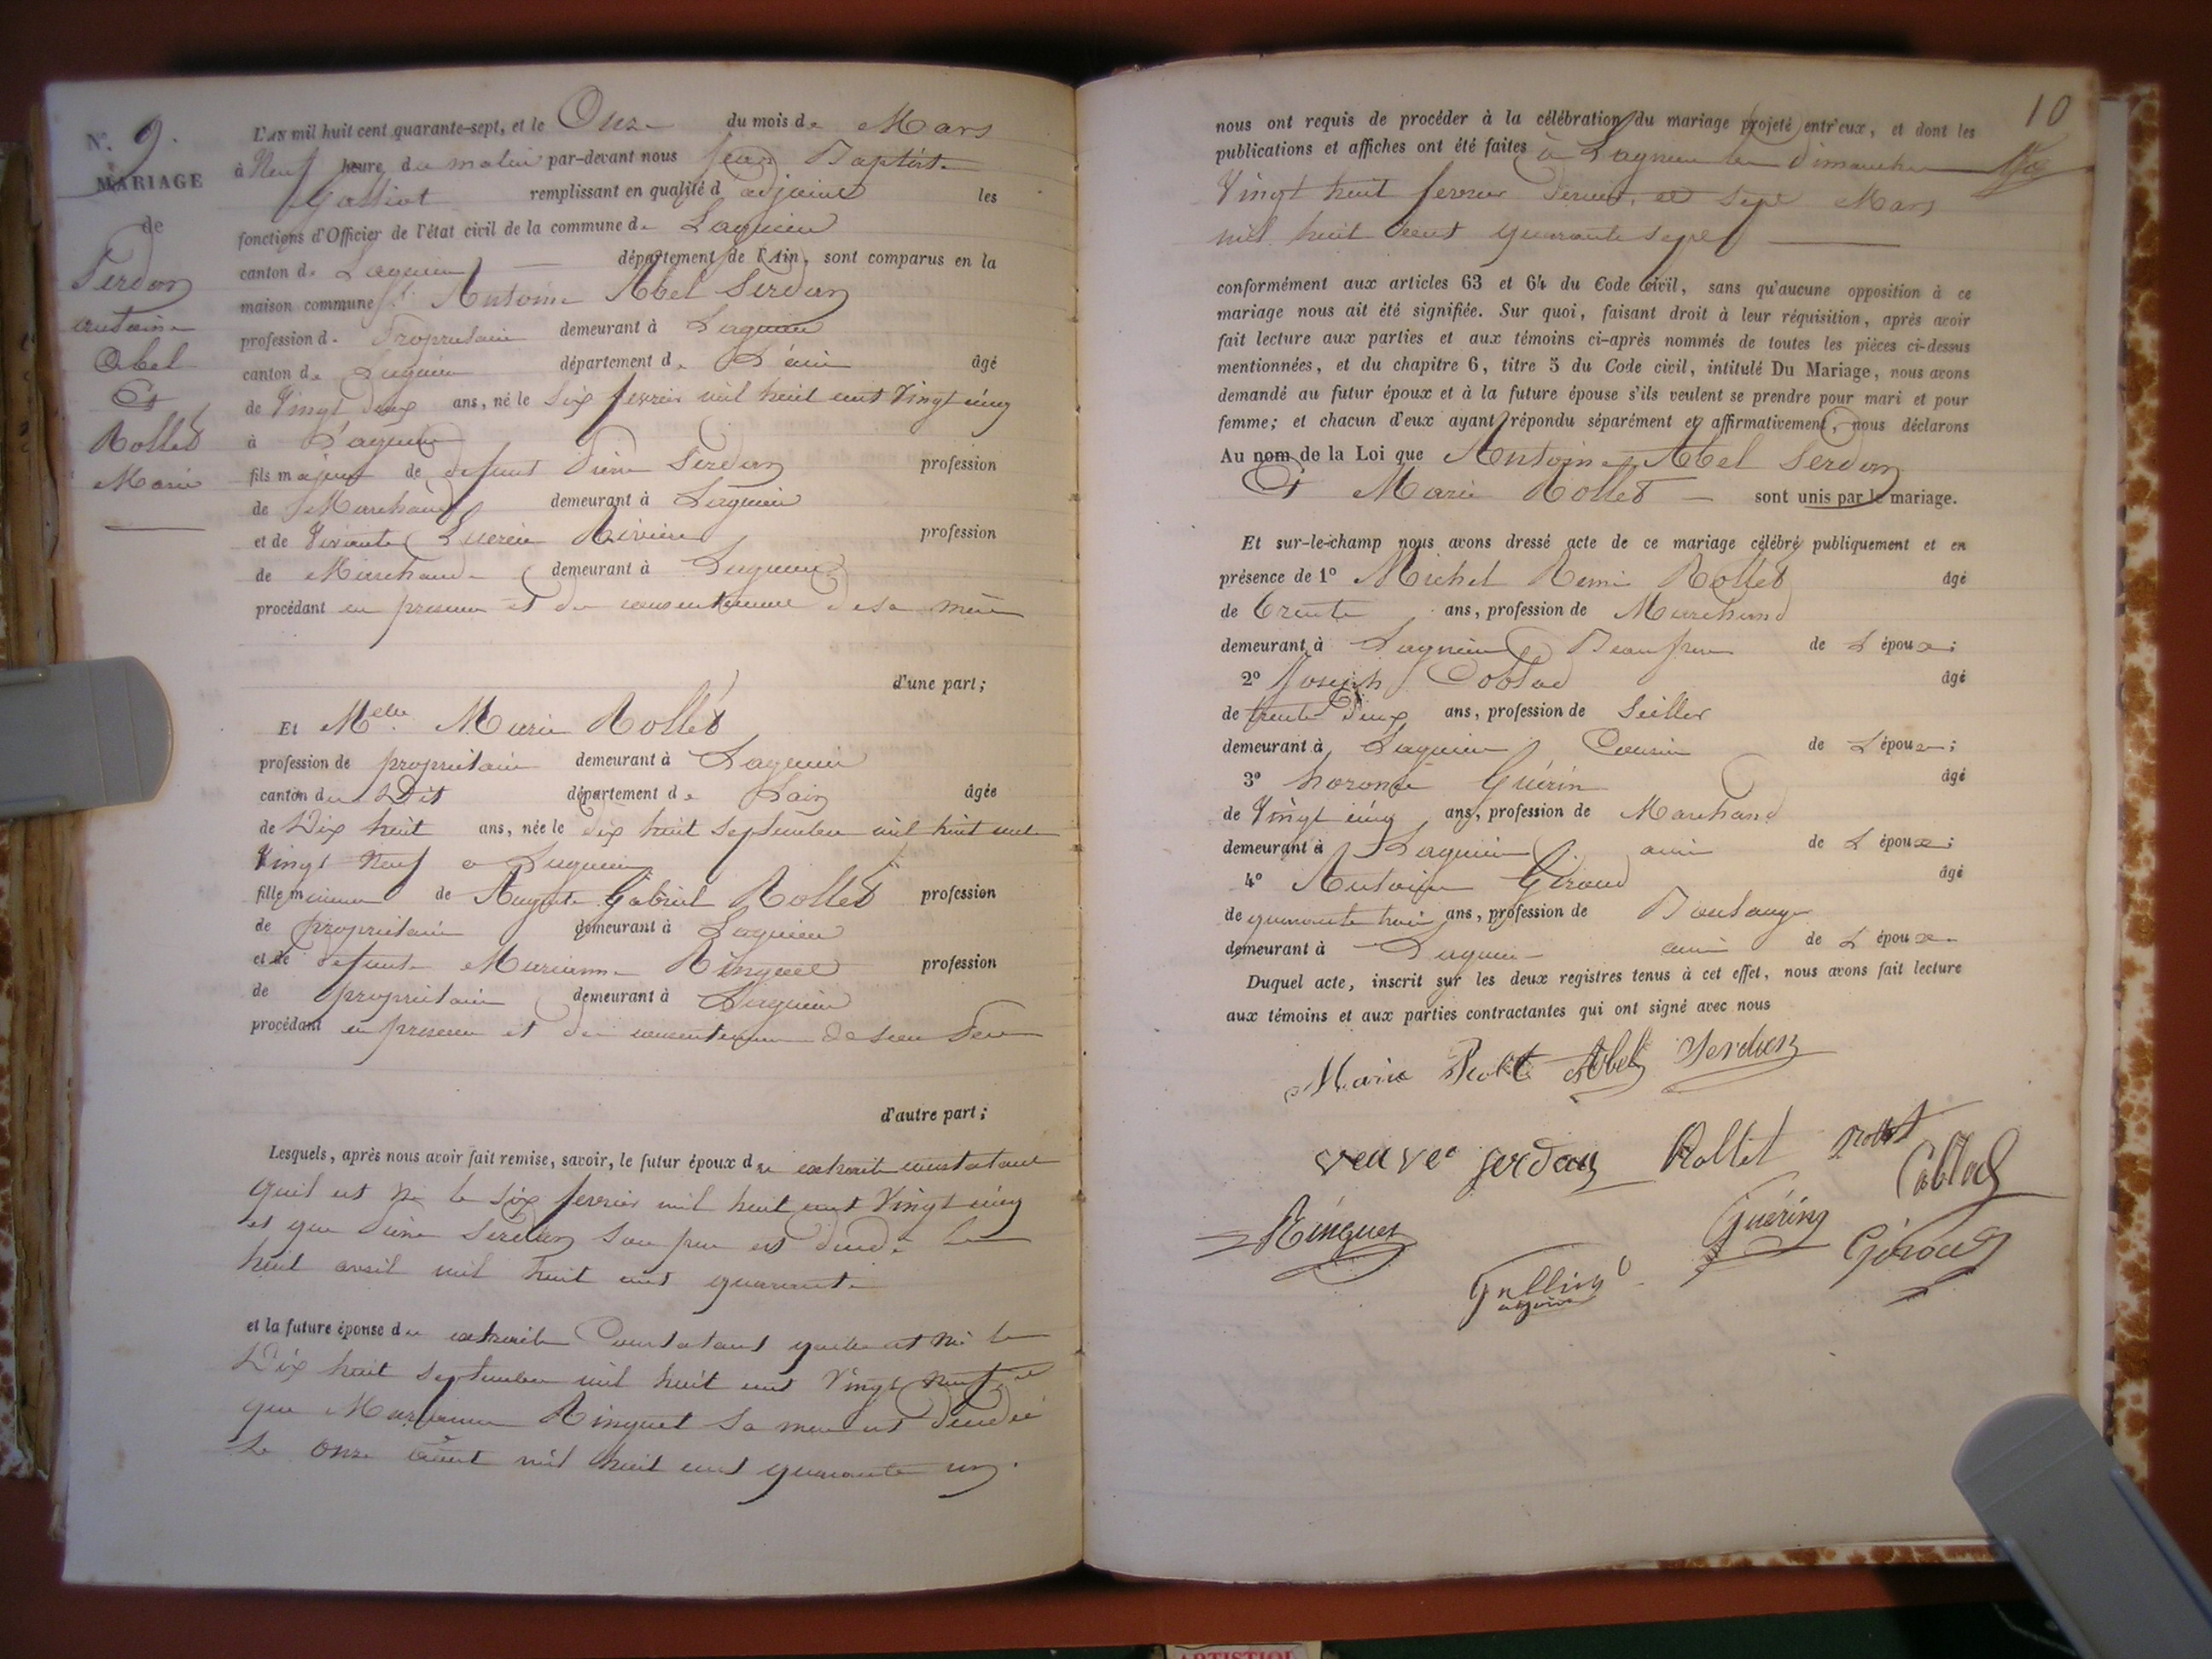 N.° 9.
MARIAGE
de
Serdon
antoine
Abel
Et
Rollet
Marie
L'AN mil huit cent quarante-sept, et le Onze du mois de Mars
à Neuf heure du matin par-devant nous Jean Baptiste
remplissant en qualité d adjoint les
fonctions d'Officier de l'état civil de la commune de Lagnieu
canton de Lagnieu département de l'Ain, sont comparus en la
maison commune Sr Antoine Abel Serdon
profession de Propriétaire demeurant à Lagnieu
canton de Lagnieu département de L'ain âgé
de Vingt deux ans, né le Six fevrier mil huit cent Vingt cinq
à Lagnieu
fils majeur de defunt Pierre Serdon profession
de Marchand demeurant à Lagnieu
et de Vivante Lucrèce Rivière profession
de Marchande demeurant à Lagnieu
procédant en presence et du consentement de sa mère
d'une part;
Et Melle Marie Rollet
profession de propriétaire demeurant à Lagnieu
canton du Dit département de Lain âgée
de Dix huit ans, née le dix huit septembre mil huit cent
Vingt Neuf a Lagnieu
fille mineure de Auguste Gabriel Rollet profession
de propriétaire demeurant à Lagnieu
et de defunte Marianne Ringuet profession
de propriétaire demeurant à Lagnieu
procédant en presence et du consentement de son Pere
d'autre part;
Lesquels, après nous avoir fait remise, savoir, le futur époux de extrait constatant
quil est né le Six fevrier mil huit cent Vingt cinq
et que Pierre Serdon son pere est décédé le
huit avril mil huit cent quarante
et la future épouse de extrait Constatant quelle est née le
Dix huit septembre mil huit cent Vingt Neuf, et
que Marianne Ringuet sa mere est décédée
le onze août mil huit cent quarante un.
10
nous ont requis de procéder à la célébration du mariage projeté entr'eux, et dont les
publications et affiches ont été faites à Lagnieu les dimanches
Vingt huit fevrier dernier, et sept Mars
mil huit cent quarante sept
conformément aux articles 63 et 64 du Code civil, sans qu'aucune opposition à ce
mariage nous ait été signifiée. Sur quoi, faisant droit à leur réquisition, après avoir
fait lecture aux parties et aux témoins ci-après nommés de toutes les pièces ci-dessus
mentionnées, et du chapitre 6, titre 5 du Code civil, intitulé Du Mariage, nous avons
demandé au futur époux et à la future épouse s'ils veulent se prendre pour mari et pour
femme; et chacun d'eux ayant répondu séparément et affirmativement, nous déclarons
Au nom de la Loi que Antoine Abel Serdon
Et Marie Rollet sont unis par le mariage.
Et sur-le-champ nous avons dressé acte de ce mariage célébré publiquement et en
présence de 1° Michel Remi Rollet âgé
de trente ans, profession de Marchand
demeurant à Lagnieu Beau frere de L époux;
2° Joseph Coblod âgé
de trente Deux ans, profession de Sellier
demeurant à Lagnieu Cousin de L épouse;
3° Guérin âgé
de Vingt cinq ans, profession de Marchand
demeurant à Lagnieu ami de L époux;
4° Antoine Giroud âgé
de quarante trois ans, profession de Boulanger
demeurant à Lagnieu ami de L époux
Duquel acte, inscrit sur les deux registres tenus à cet effet, nous avons fait lecture
aux témoins et aux parties contractantes qui ont signé avec nous
Marie Rollet Abel Serdon
veuve serdon Rollet Rollet Coblod
Ringuet Guérin Giroud
adjoint